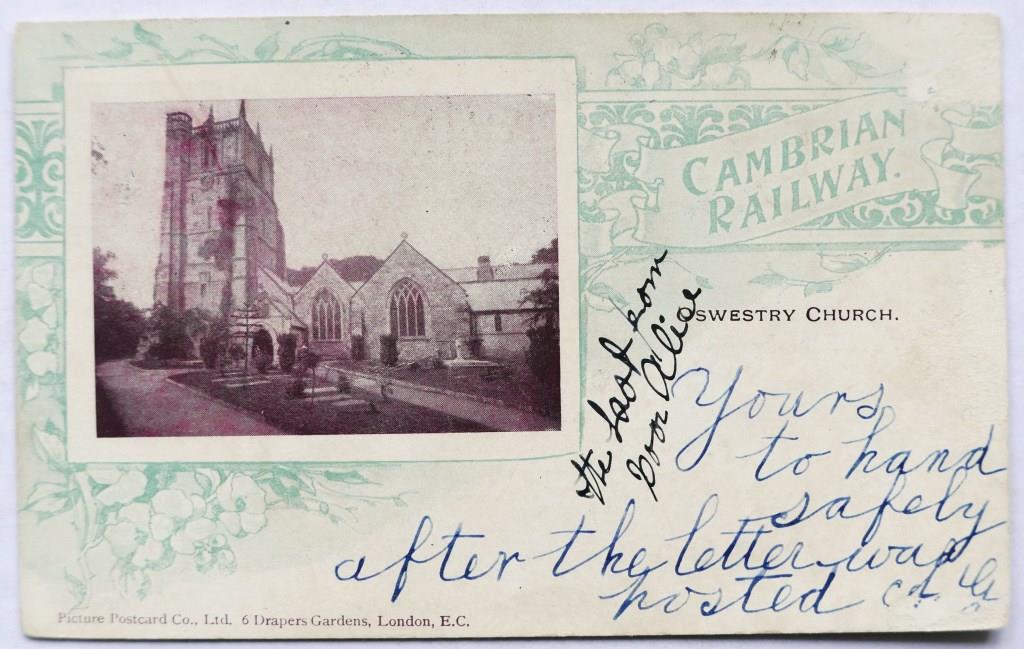 CAMBRIAN
RAILWAY.
SWESTRY CHURCH.
the last
Alice
Yours
to hand
safely
after the letter was
posted
Picture Postcard Co., Ltd. 6 Drapers Gardens, London, E.C.